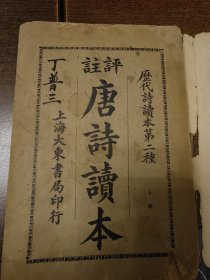 歷代詩讀本第二種
上冊
評註
唐詩讀本
上海大東書局印行
丁普三